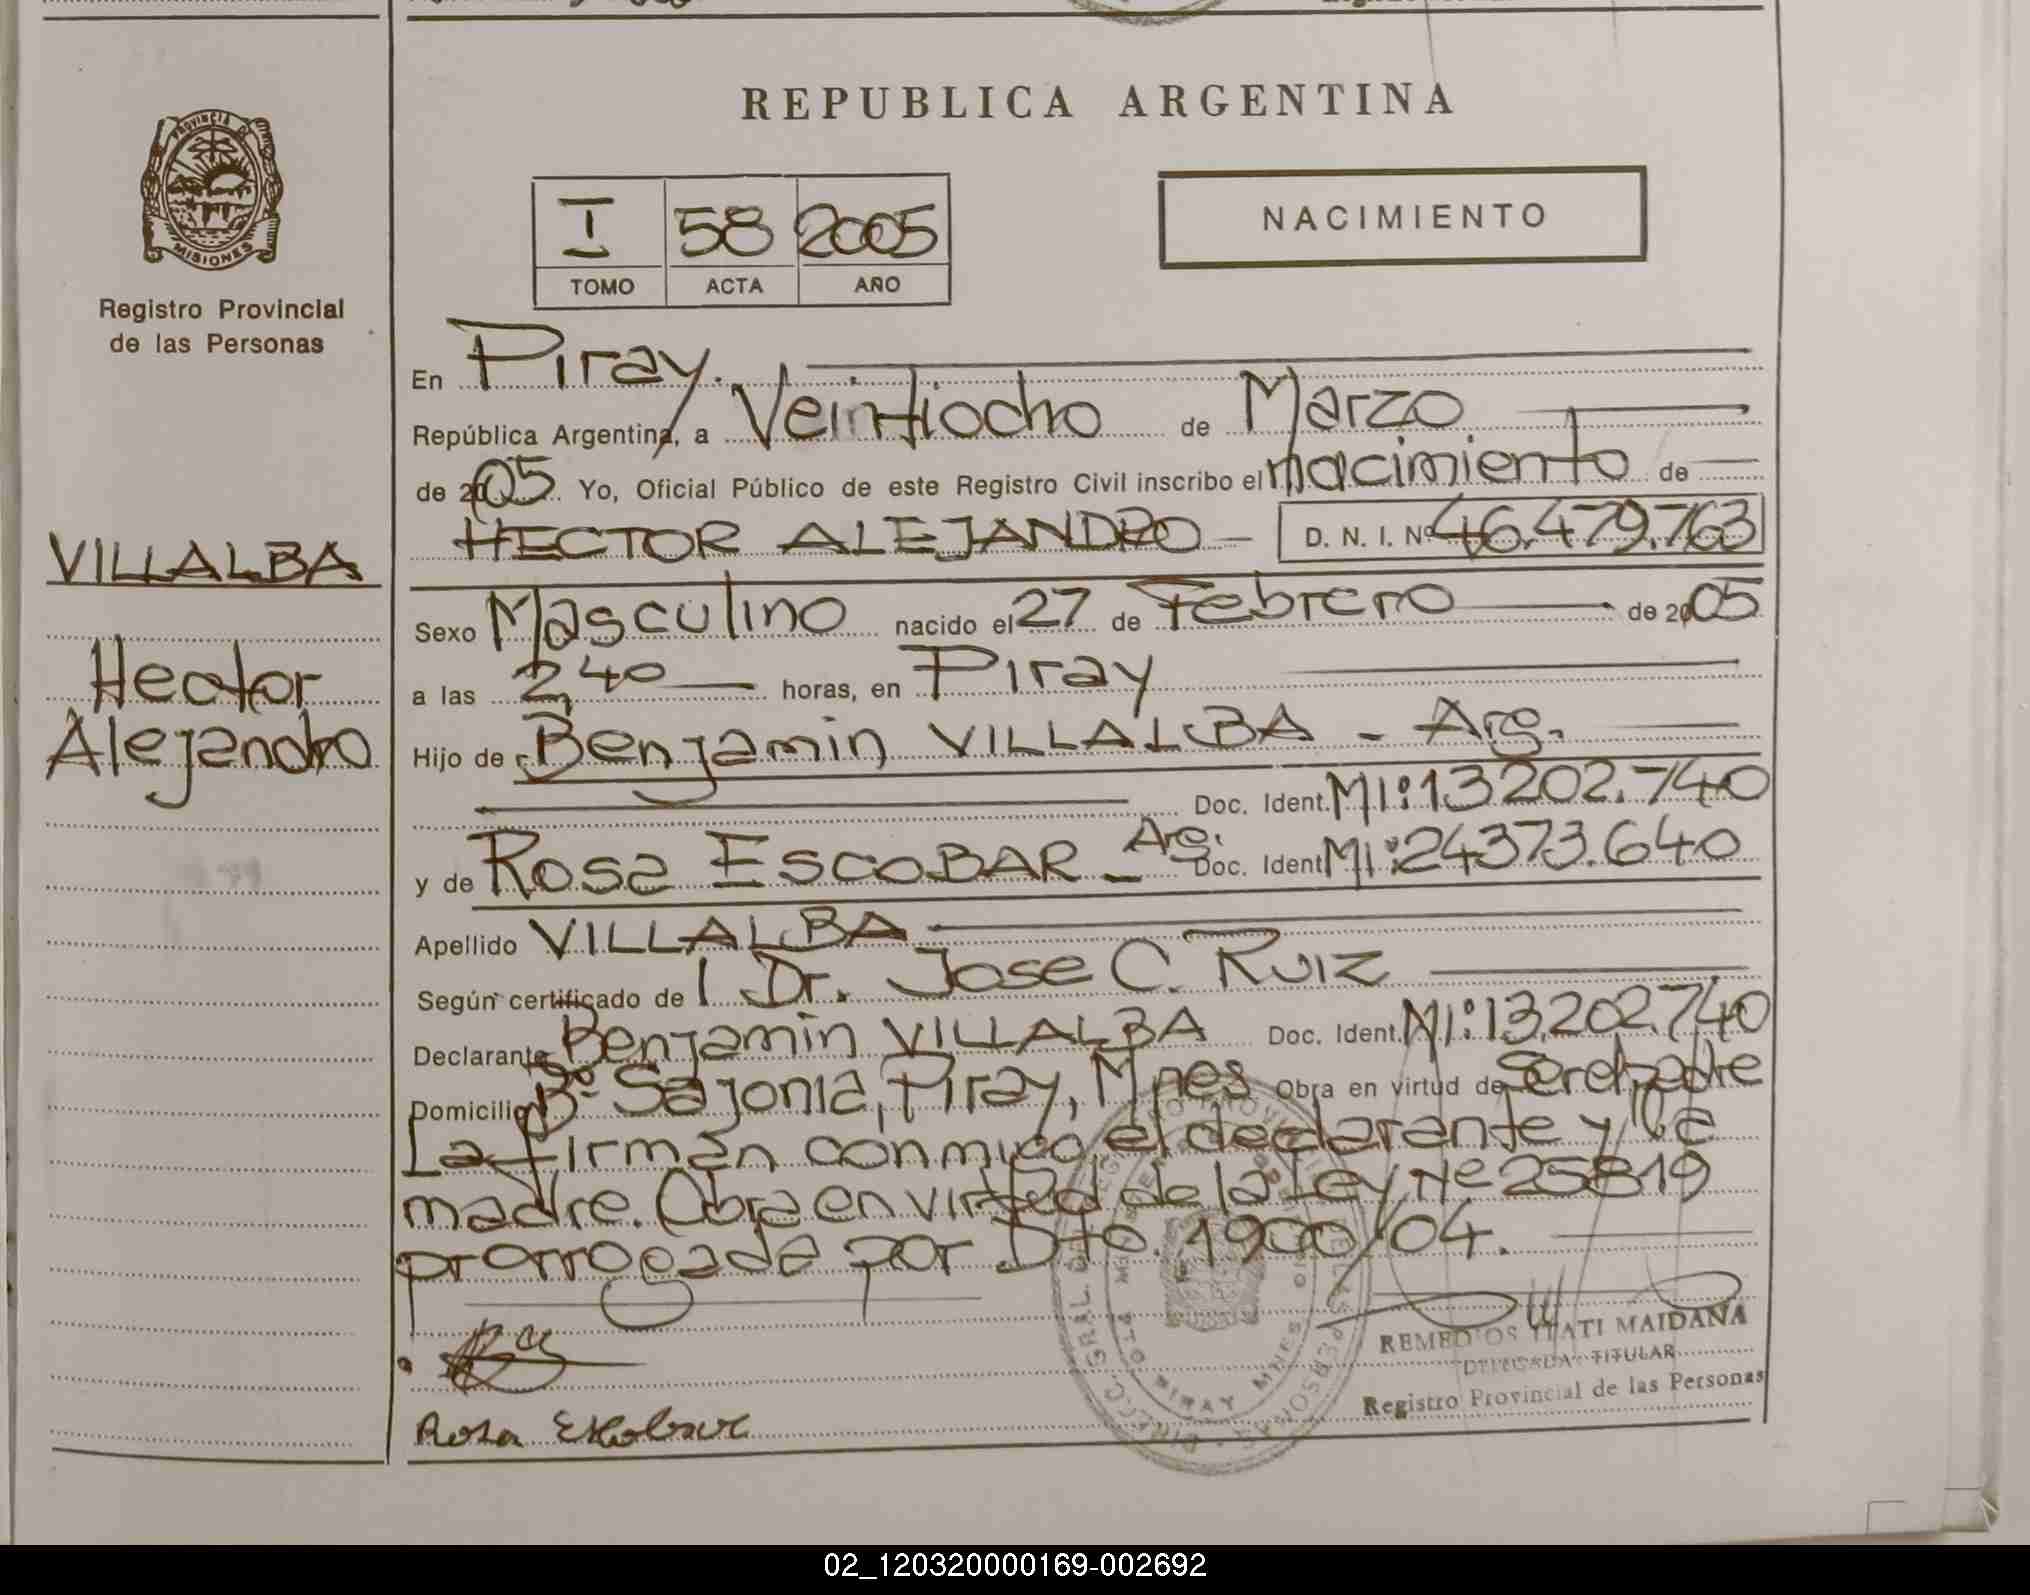 REPUBLICA ARGENTINA
PROVINCIA DE
MISIONES
Registro Provincial
de las Personas
I 58 2005
TOMO ACTA AÑO
NACIMIENTO
En Piray.
República Argentina, a Veintiocho de Marzo
de 2005 Yo, Oficial Público de este Registro Civil inscribo el nacimiento de
HECTOR ALEJANDRO - D. N. I. Nº 46.479.763
VILLALBA
Hector
Alejandro
Sexo Masculino nacido el 27 de Febrero de 2005
a las 2,40 horas, en Piray
Hijo de Benjamin VILLALBA - Arg.
Doc. Ident. MI: 13202.740
y de Rosa ESCOBAR - Arg. Doc. Ident MI: 24373.640
Apellido VILLALBA
Según certificado de l Dr. Jose C. Ruiz
Declarante Benjamin VILLALBA Doc. Ident. MI: 13,202.740
Domicilio Bº Sajonia, Piray, Mnes Obra en virtud de Ser el padre
La firman conmigo el declarante y la
madre. Obra en virtud de la Ley Nº 25819
prorrogada por Dto. 1900/04.
REMEDIOS ITATI MAIDANA
DELEGADA TITULAR
Registro Provincial de las Personas
PIRAY MNES
Rosa Escobar
02_120320000169-002692